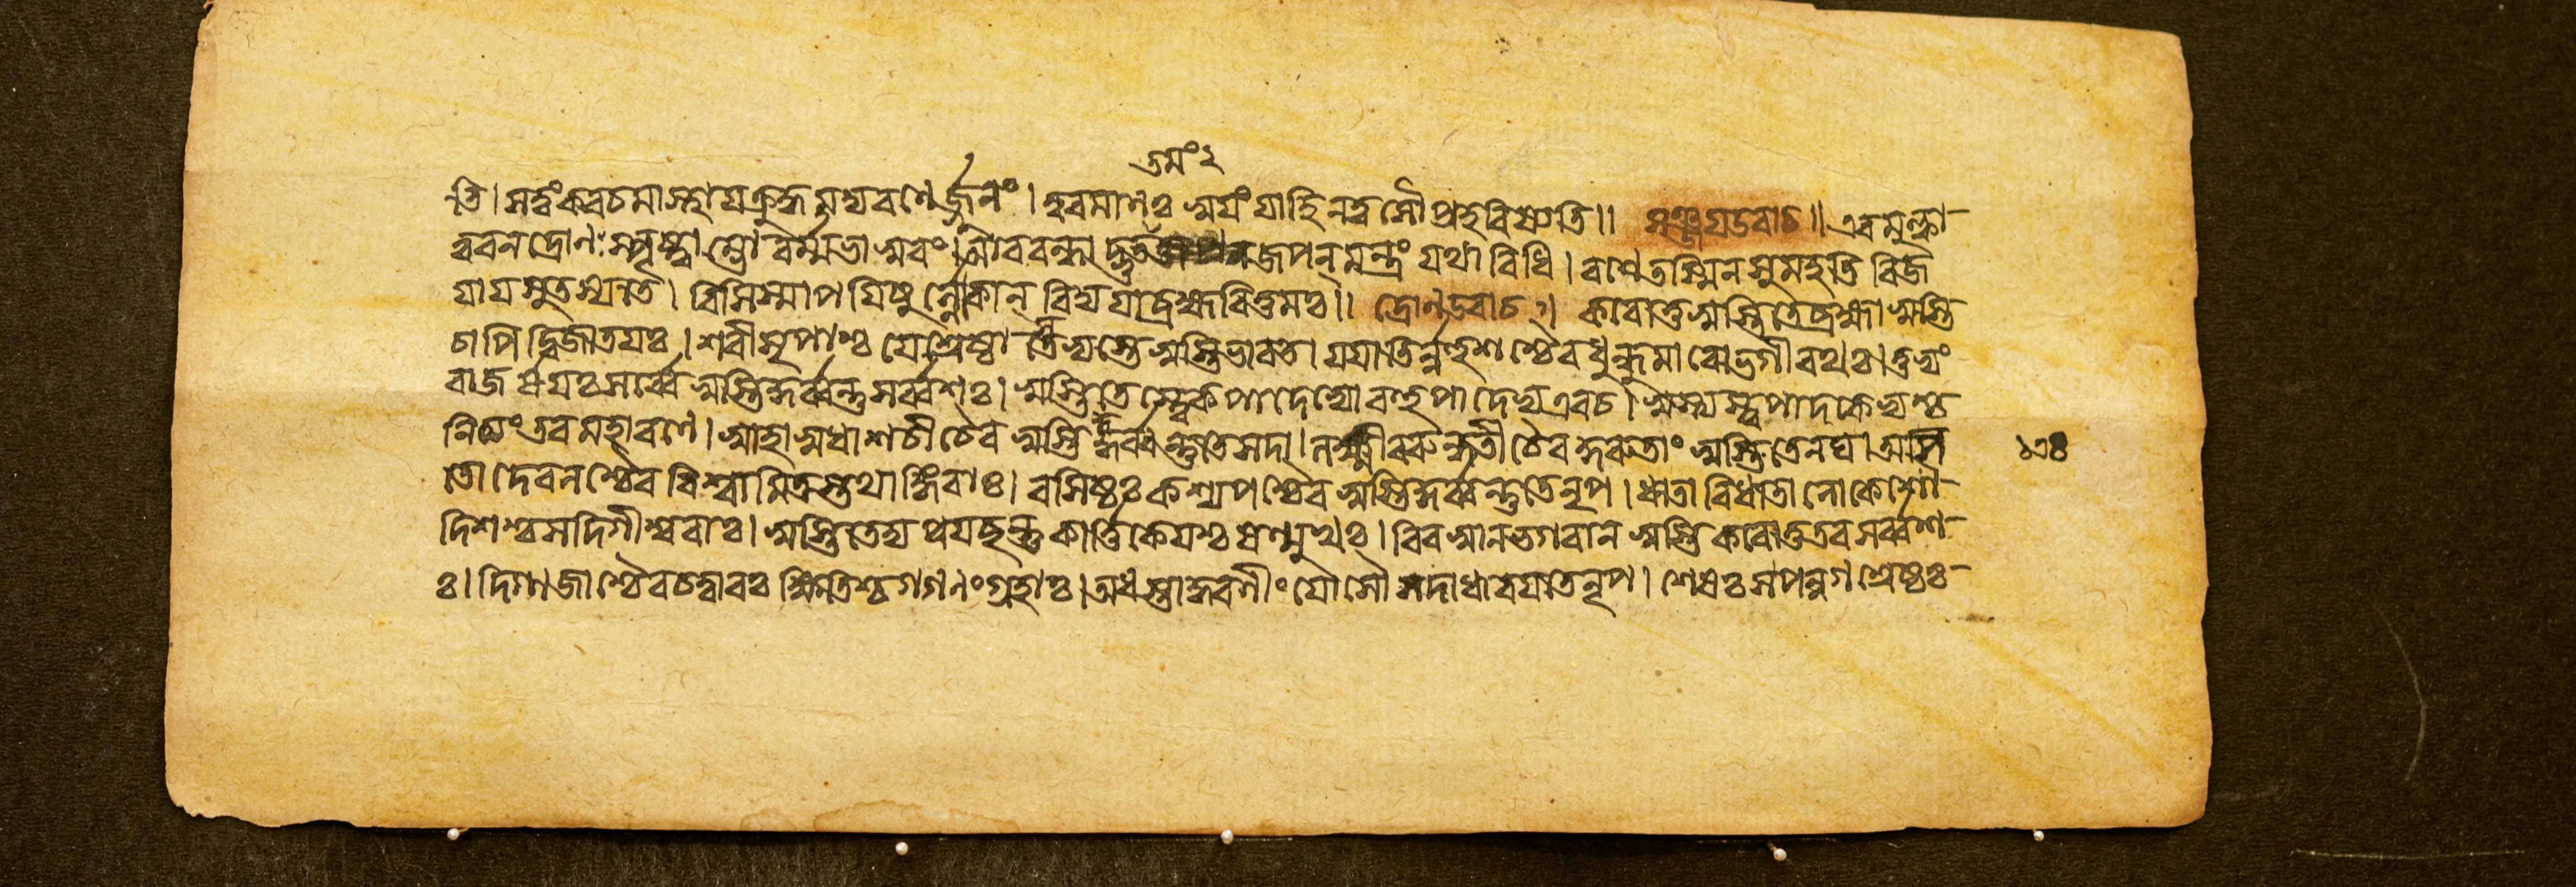 তমং ২
তি। সত্বং কবচমাস্থায় ক্রুদ্ধমদ্য রণেঽর্জ্জুনং। ত্বরমাণঃ স্বয়ং যাহি ন ত্বসৌ প্রহরিষ্যতি॥ সঞ্জয় উবাচ॥ এবমুক্ত্বা
ত্বরন দ্রোণঃ স্পৃষ্ট্বাম্ভো বর্ম্ম ভাস্বরং। আববন্ধাদ্ভুত জপন্ মন্ত্রং যথাবিধি। রণে তস্মিন সুমহতি বিজ
যায় সুতস্য তে। বিসিস্মাপয়িষুর্ল্লোকান্ বিদ্যয়া ব্রহ্মবিত্তমঃ॥ দ্রোণ উবাচ॥ করোতু স্বস্তি তে ব্রহ্মা স্বস্তি
চাপি দ্বিজাতয়ঃ। শরীসৃপাশ্চ যে শ্রেষ্ঠাস্তেভ্যস্তে স্বস্তি ভারত। যযাতির্ন্নহুশশ্চৈব ধুন্ধুমারো ভগীরথঃ। তুভ্যং
রাজর্ষয়ঃ সর্ব্বে স্বস্তি কুর্ব্বন্তু সর্ব্বশঃ। স্বস্তি তেস্ত্বেকপাদেভ্যো বহুপাদেভ্য এব চ। স্বস্ত্যস্ত্বপাদকেভ্যশ্চ
নিত্যং তব মহারণে। স্বাহা স্বধা শচী চৈব স্বস্তি কুর্ব্বন্তু তে সদা। লক্ষ্মীররুন্ধতী চৈব কুরুতাং স্বস্তি তেনঘ। অসি
১৭৪
তো দেবলশ্চৈব বিশ্বামিত্রস্তথাঙ্গিরাঃ। বসিষ্ঠঃ কশ্যপশ্চৈব স্বস্তি কুর্ব্বন্তু তে নৃপ। ধাতা বিধাতা লোকেশো
দিশশ্চ সদিগীশ্বরাঃ। স্বস্তি তেদ্য প্রযচ্ছন্তু কার্ত্তিকেয়শ্চ ষন্মুখঃ। বিবস্বান ভগবান স্বস্তি করোতু তব সর্ব্বশ
ঃ। দিগ্গজাশ্চৈব চত্বারঃ ক্ষিতিশ্চ গগণং গ্রহাঃ। অধস্তাদ্ধরণীং যোসৌ সদা ধারয়তে নৃপ। শেষঃ স পন্নগশ্রেষ্ঠঃ